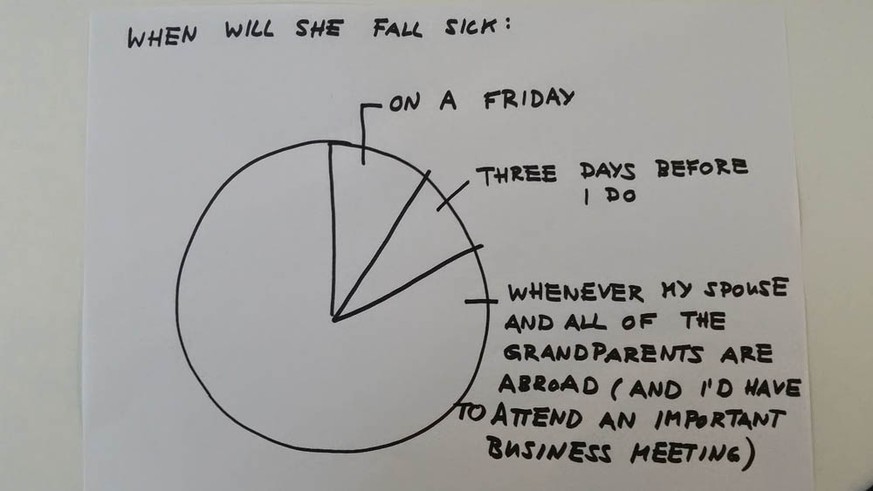 WHEN WILL SHE FALL SICK:
ON A FRIDAY
THREE DAYS BEFORE
I DO
WHENEVER MY SPOUSE
AND ALL OF THE
GRANDPARENTS ARE
ABROAD (AND I'D HAVE
TO ATTEND AN IMPORTANT
BUSINESS MEETING)